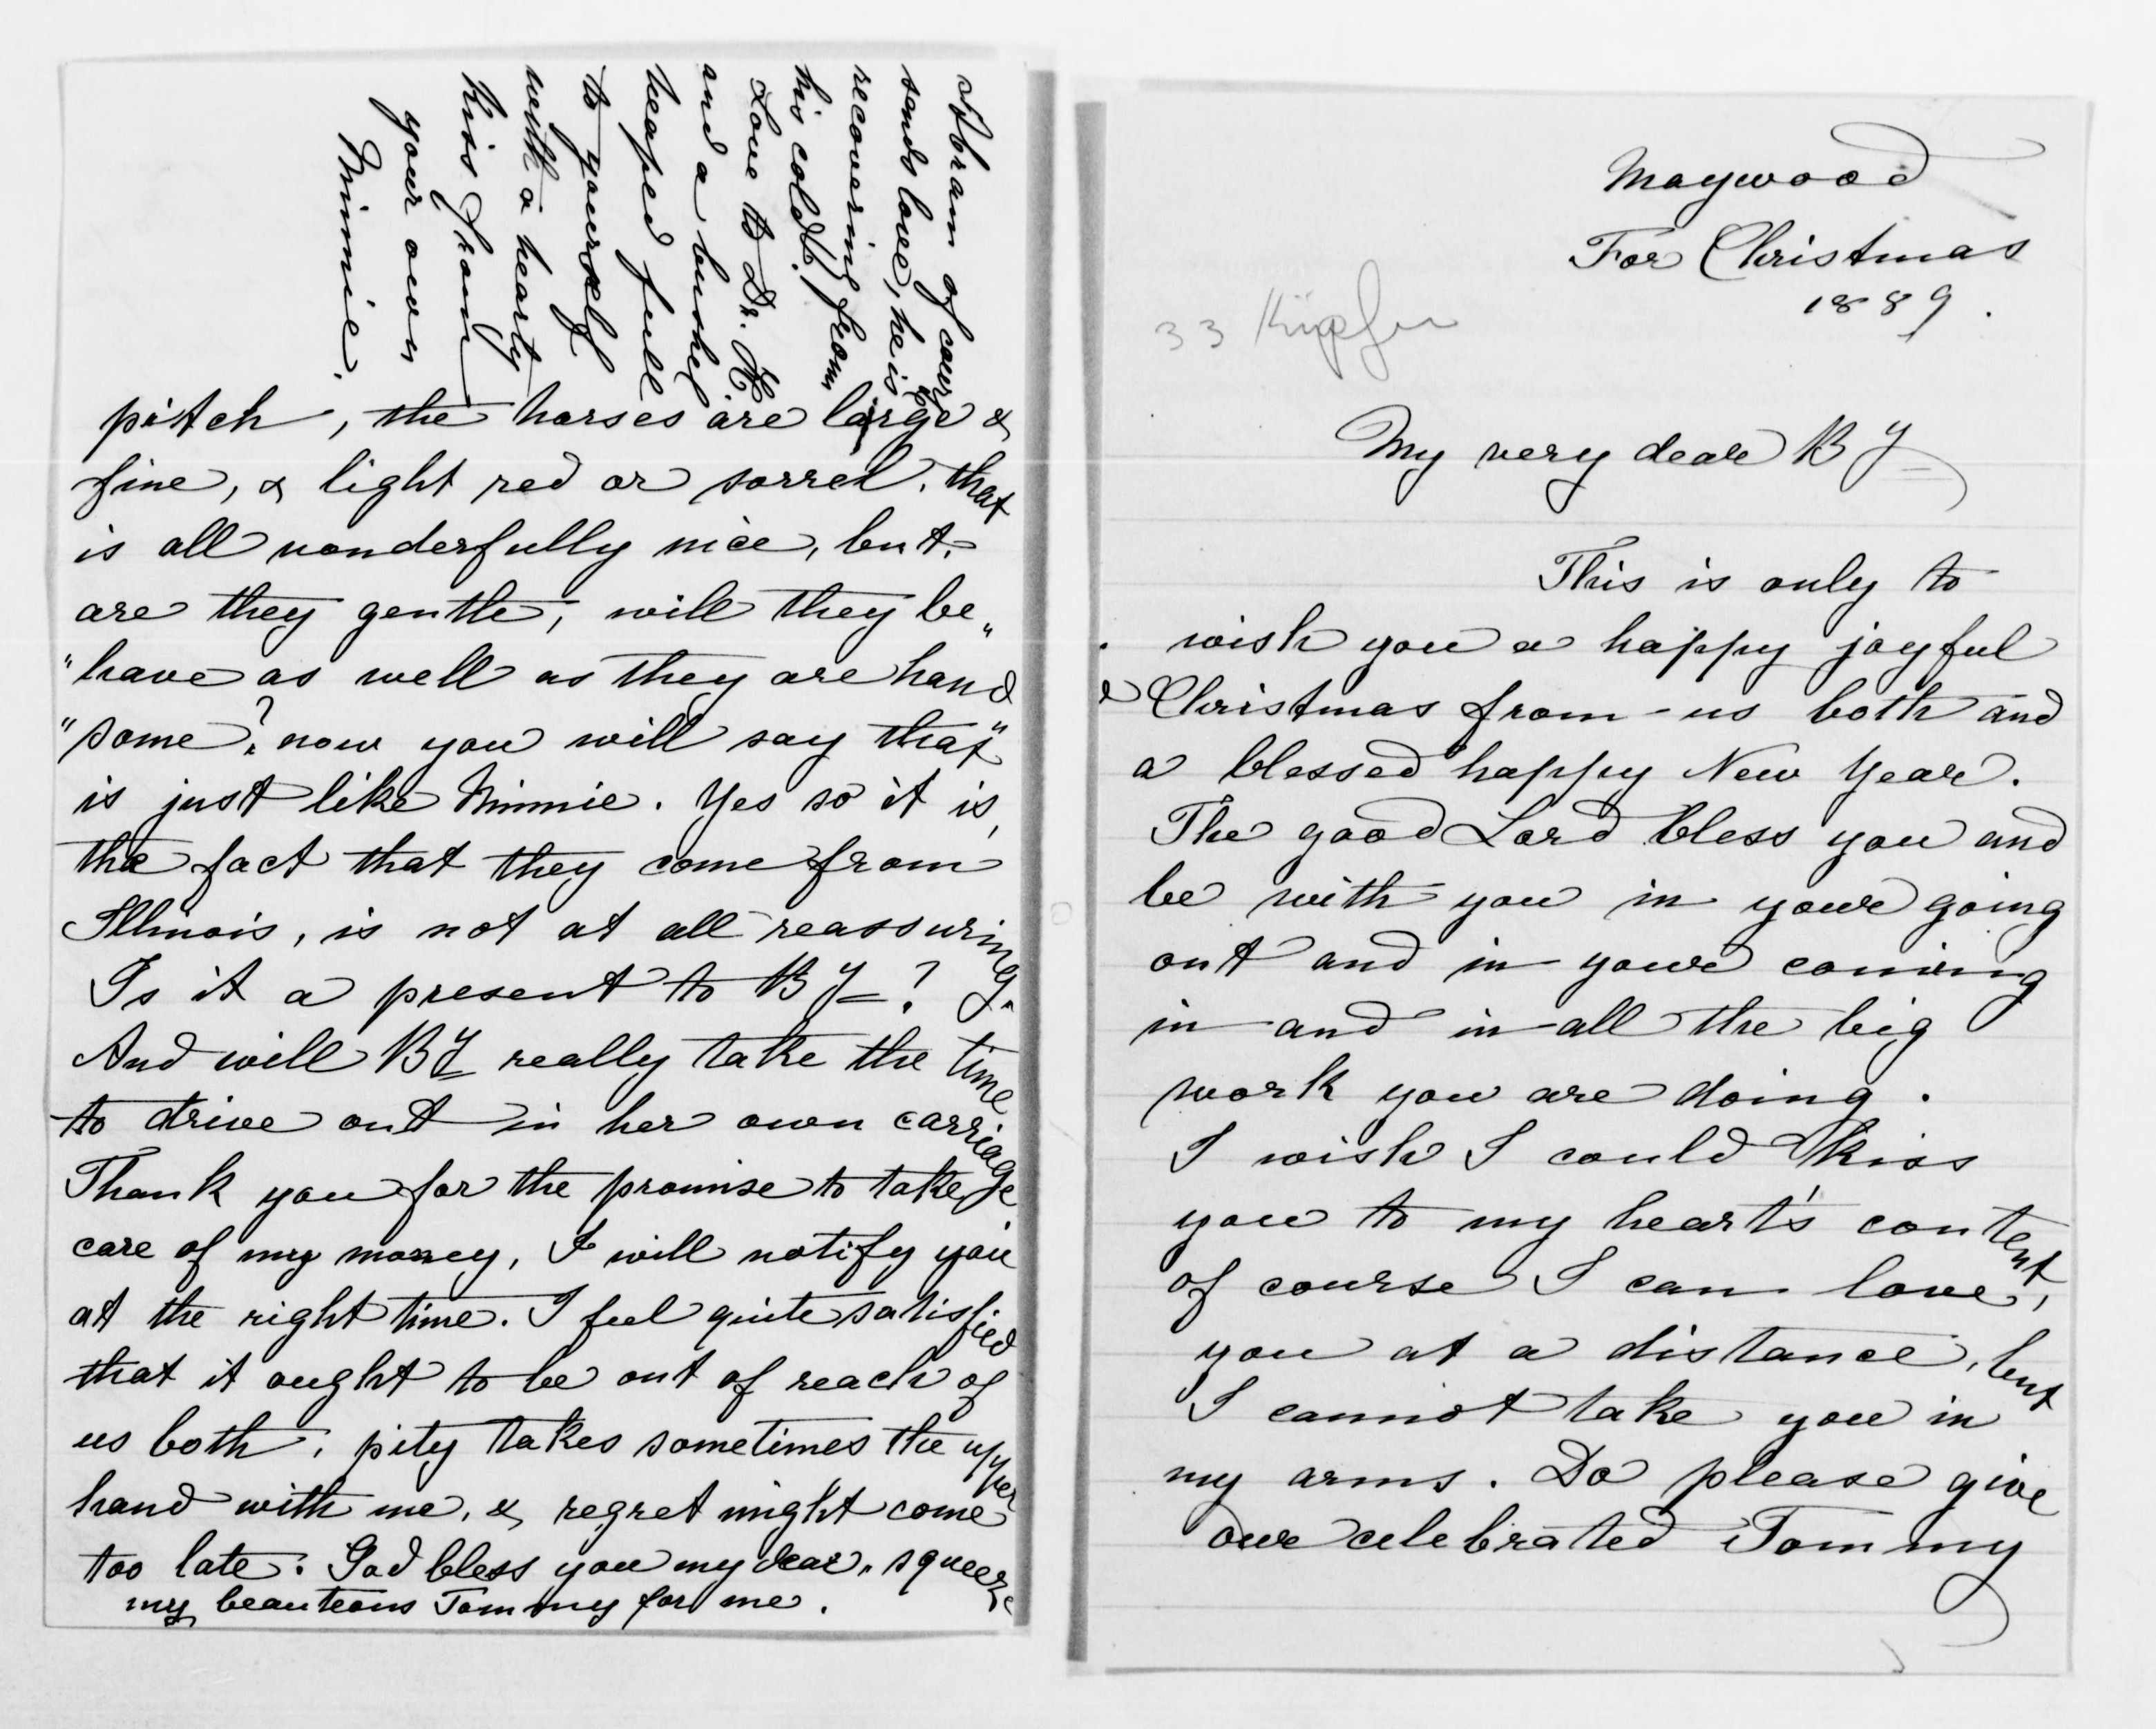 Maywood
For Christmas
1889.
33 Küpfer
My very deare BY
This is only to
wish you a happy joyful
Christmas from us both and
a blessed happy New Year.
The good Lord bless you and
be with you in youre going
out and in youre coming
in and in all the big
work you are doing.
I wish I could kiss
you to my heart's content,
of course I can love
you at a distance, but
I cannot take you in
my arms. Do please give
oure celebrated Tommy
pitch, the horses are large &
fine, & light red or sorrel. that
is all wonderfully nice, but.
are they gentle, will they be„
"have as well as they are hand
"some? now you will say that"
is just like Minnie. Yes so it is,
the fact that they come from
Illinois, is not at all reassuring.
Is it a present to BY?
And will BY really take the time
to drive out in her own carriage
Thank you for the promise to take
care of my money, I will notify you
at the right time. I feel quite satisfied
that it ought to be out of reach of
us both, pity takes sometimes the upper
hand with me, & regret might come
too late. God bless you my dear, squeeze
my beauteous Tommy for me.
Abram of course
sends love, he is
recovering from
his cold.
Love to Dr. K
and a bushel
heaped full
to yourself
with a hearty
kiss from
your own
Minnie.